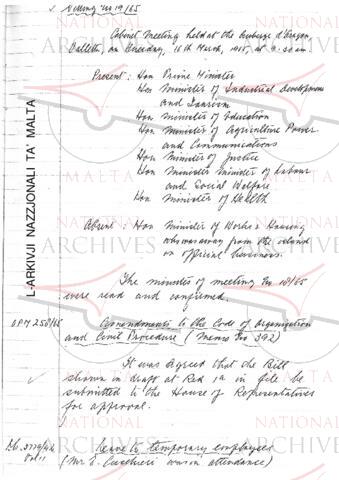 Meeting No 19/65
Cabinet Meeting held at the Auberge d'Aragon,
Valletta, on Thursday, 18th March, 1965, at 9.30 am
Present : Hon Prime Minister
Hon Minister of Industrial Development
and Tourism
Hon Minister of Education
Hon Minister of Agriculture Power
and Communications
Hon Minister of Justice
Hon Minister of Labour
and Social Welfare
Hon Minister of Health
Absent : Hon Minister of Works & Housing
who was away from the island
on official business.
The minutes of meeting No 18/65
were read and confirmed.
OPM 258/65
Amendments to the Code of Organization
and Civil Procedure (Memo No 392)
It was agreed that the Bill
shown in draft at Red 1a in file be
submitted to the House of Representatives
for approval.
Leave to temporary employees
(Mr E. Cuschieri was in attendance)
L-ARKIVJI NAZZJONALI TA' MALTA
NATIONAL
ARCHIVES
MALTA